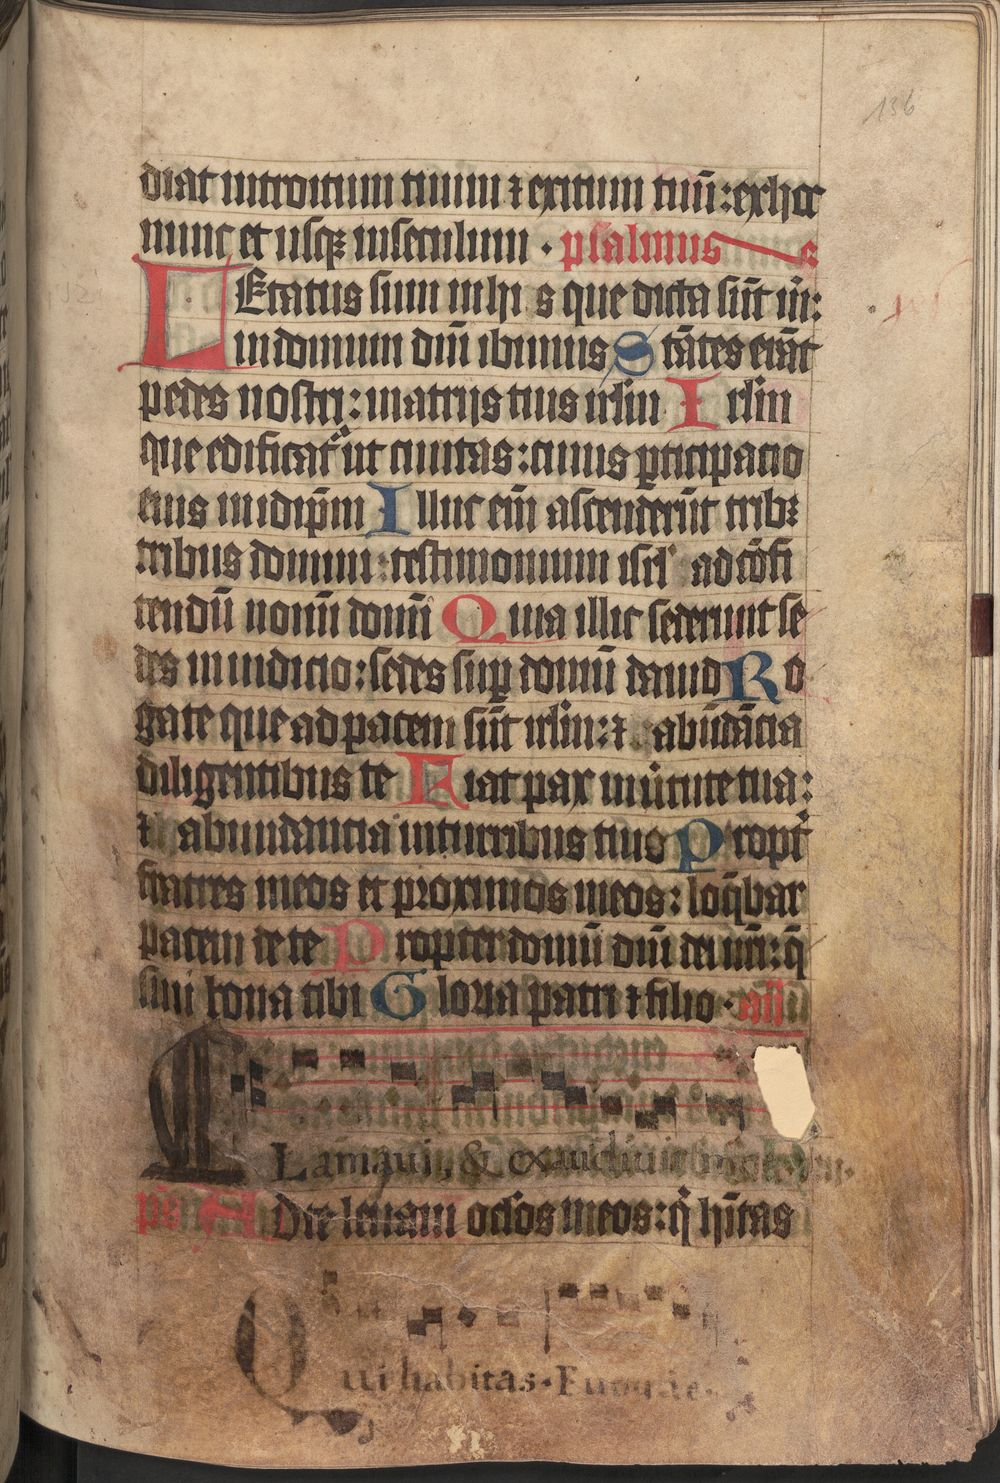 136
diat introitum tuum ⁊ exitum tuū : ex hoc
nunc et usqꝫ in seculum · psalmus
LEtatus sum in hijs que dicta sūt m̄ :
in domum dn̄i ibimus Stātes erāt
pedes nostri : in atrijs tuis irl̄m Irl̄m
que edificat᷑ ut ciuitas : cuius ꝑticipacio
eius in idip̄m Illuc em̄ ascenderūt tribꝫ
tribus domini : testimonium isrl̄ ad cōfi
tendū nomī domī Quia illic sederunt se
des in iudicio : sedes suꝑ domū dauid Ro
gate que ad pacem sūt irl̄m : ⁊ abūdācia
diligentibus te Fiat pax in uͥtute tua :
⁊ abundancia in turribus tuis Propt᷑
fratres meos et proximos meos : loq̄bar
pacem de te Propter domū dn̄i dei nr̄i : q̄
siui bona tibi Gloria patri ⁊ filio · an̄
Clamaui, & exaudiuit
ps̄ AD te leuaui oc̄los meos : qͥ hītas
Qui habitas · Euouae ·